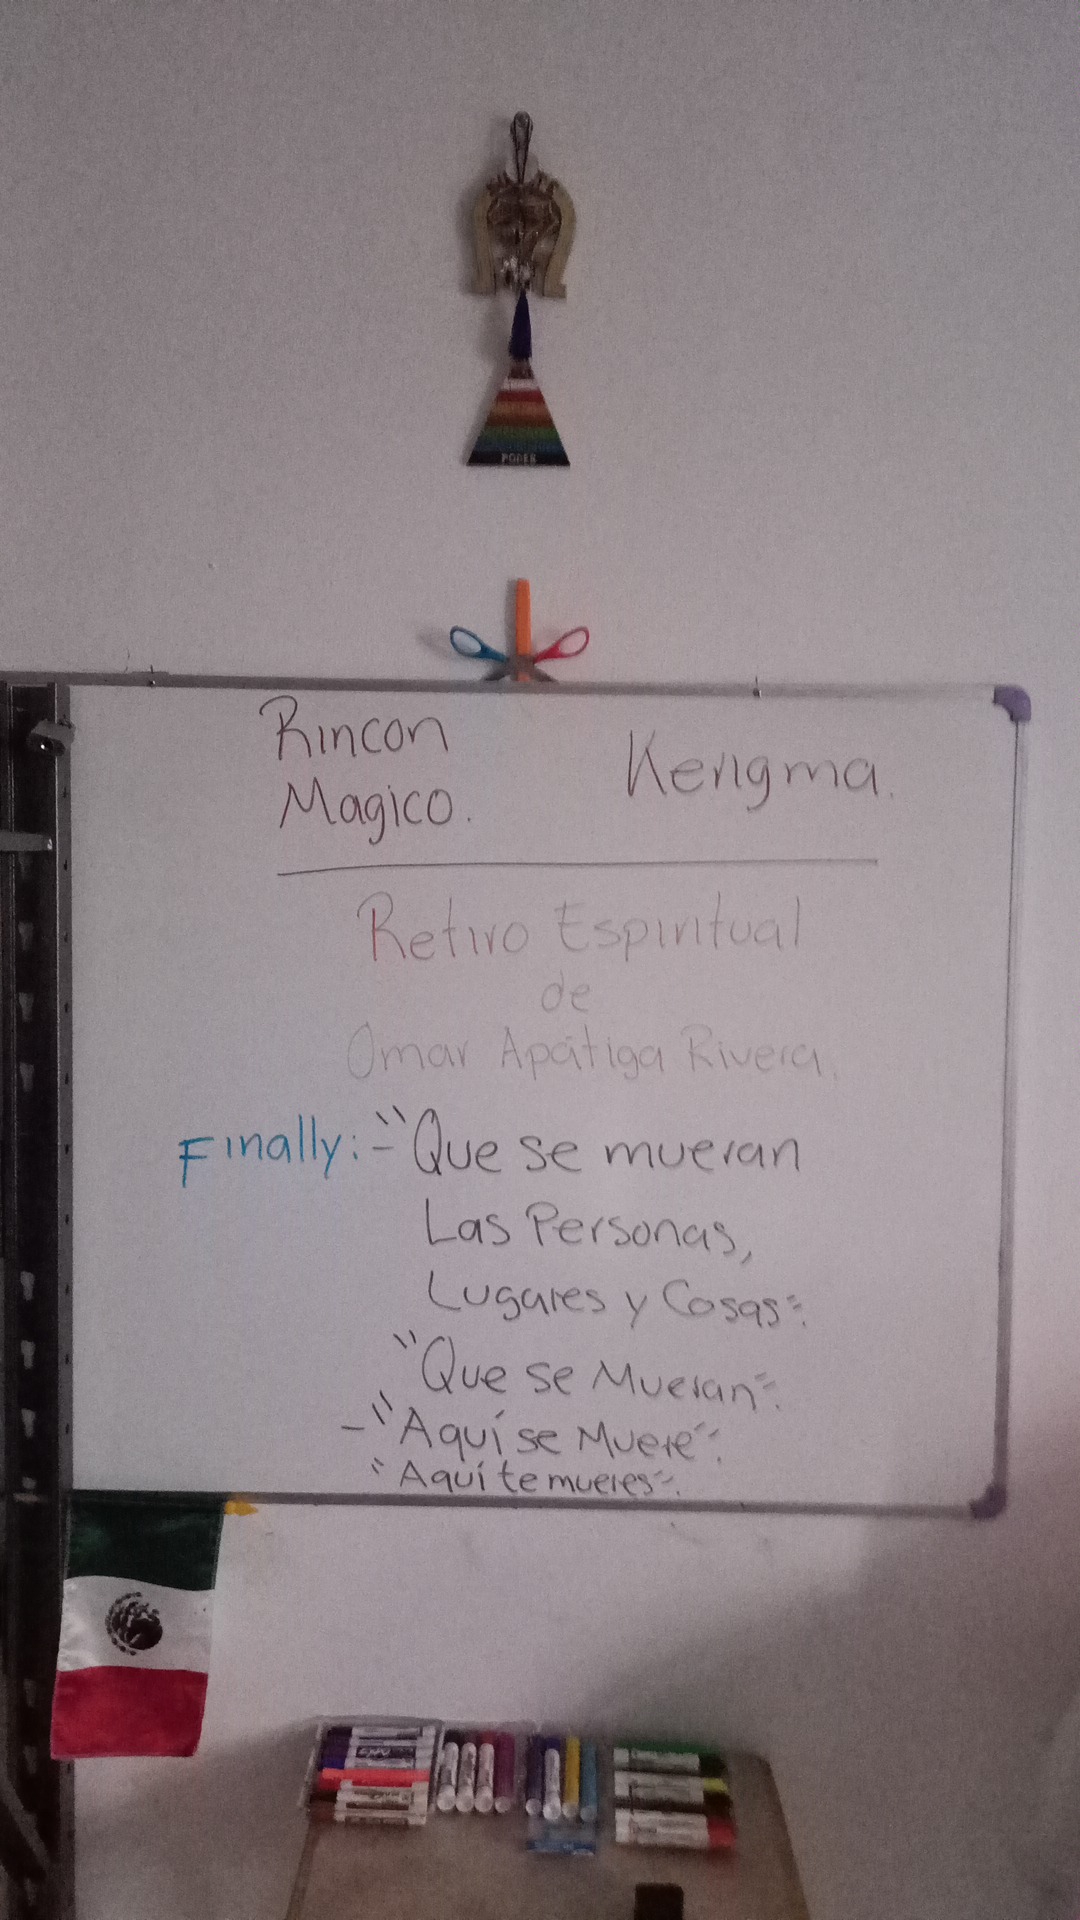 PODER
Rincon
Magico.
Kerigma.
Retiro Espiritual
de
Omar Apátiga Rivera.
Finally: - "Que se mueran
Las Personas,
Lugares y Cosas".
"Que se Mueran".
- "Aquí se Muere".
"Aquí te mueres".
EXPO